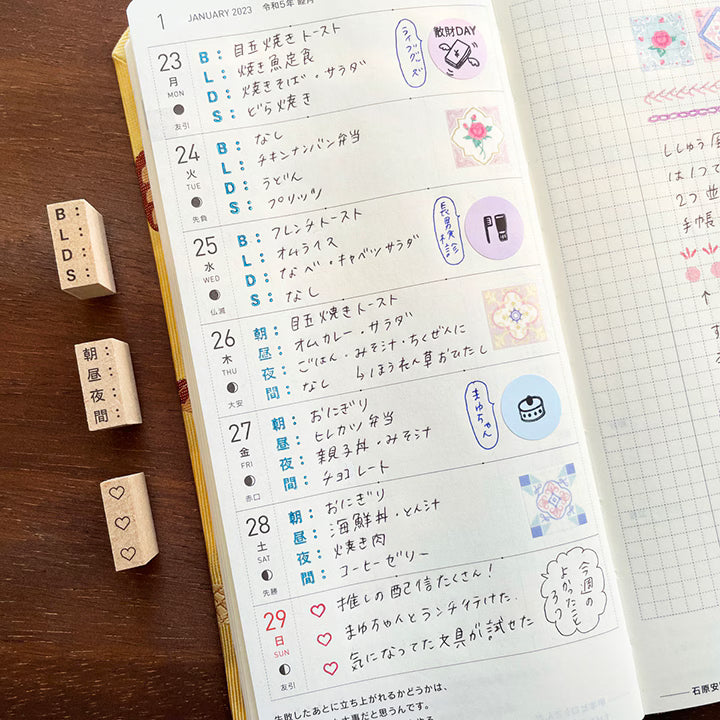 1 JANUARY 2023 令和5年 睦月
23 月 MON 友引
B: 目玉焼きトースト
L: 焼き魚定食
D: 焼きそば・サラダ
S: どら焼き
ライブグッズ
散財DAY
24 火 TUE 先負
B: なし
L: チキンナンバン弁当
D: うどん
S: プリッツ
25 水 WED 仏滅
B: フレンチトースト
L: オムライス
D: なべ・キャベツサラダ
S: なし
長男検診
26 木 THU 大安
朝: 目玉焼きトースト
昼: オムカレー・サラダ
夜: ごはん・みそ汁・ちくぜんに
↳ほうれん草おひたし
間: なし
27 金 FRI 赤口
朝: おにぎり
昼: ヒレカツ弁当
夜: 親子丼・みそ汁
間: チョコレート
まゆちゃん
28 土 SAT 先勝
朝: おにぎり
昼: 海鮮丼・とん汁
夜: 焼き肉
間: コーヒーゼリー
29 日 SUN 友引
♡ 推しの配信たくさん!
♡ まゆちゃんとランチ行けた.
♡ 気になってた文具が試せた
今週の
よかったこと
3つ
失敗したあとに立ち上がれるかどうかは、
事だと思うんです。
B:
L:
D:
S:
朝:
昼:
夜:
間:
♡
♡
♡
ししゅう
は1つ
2つ並
手帳
↑
石原安